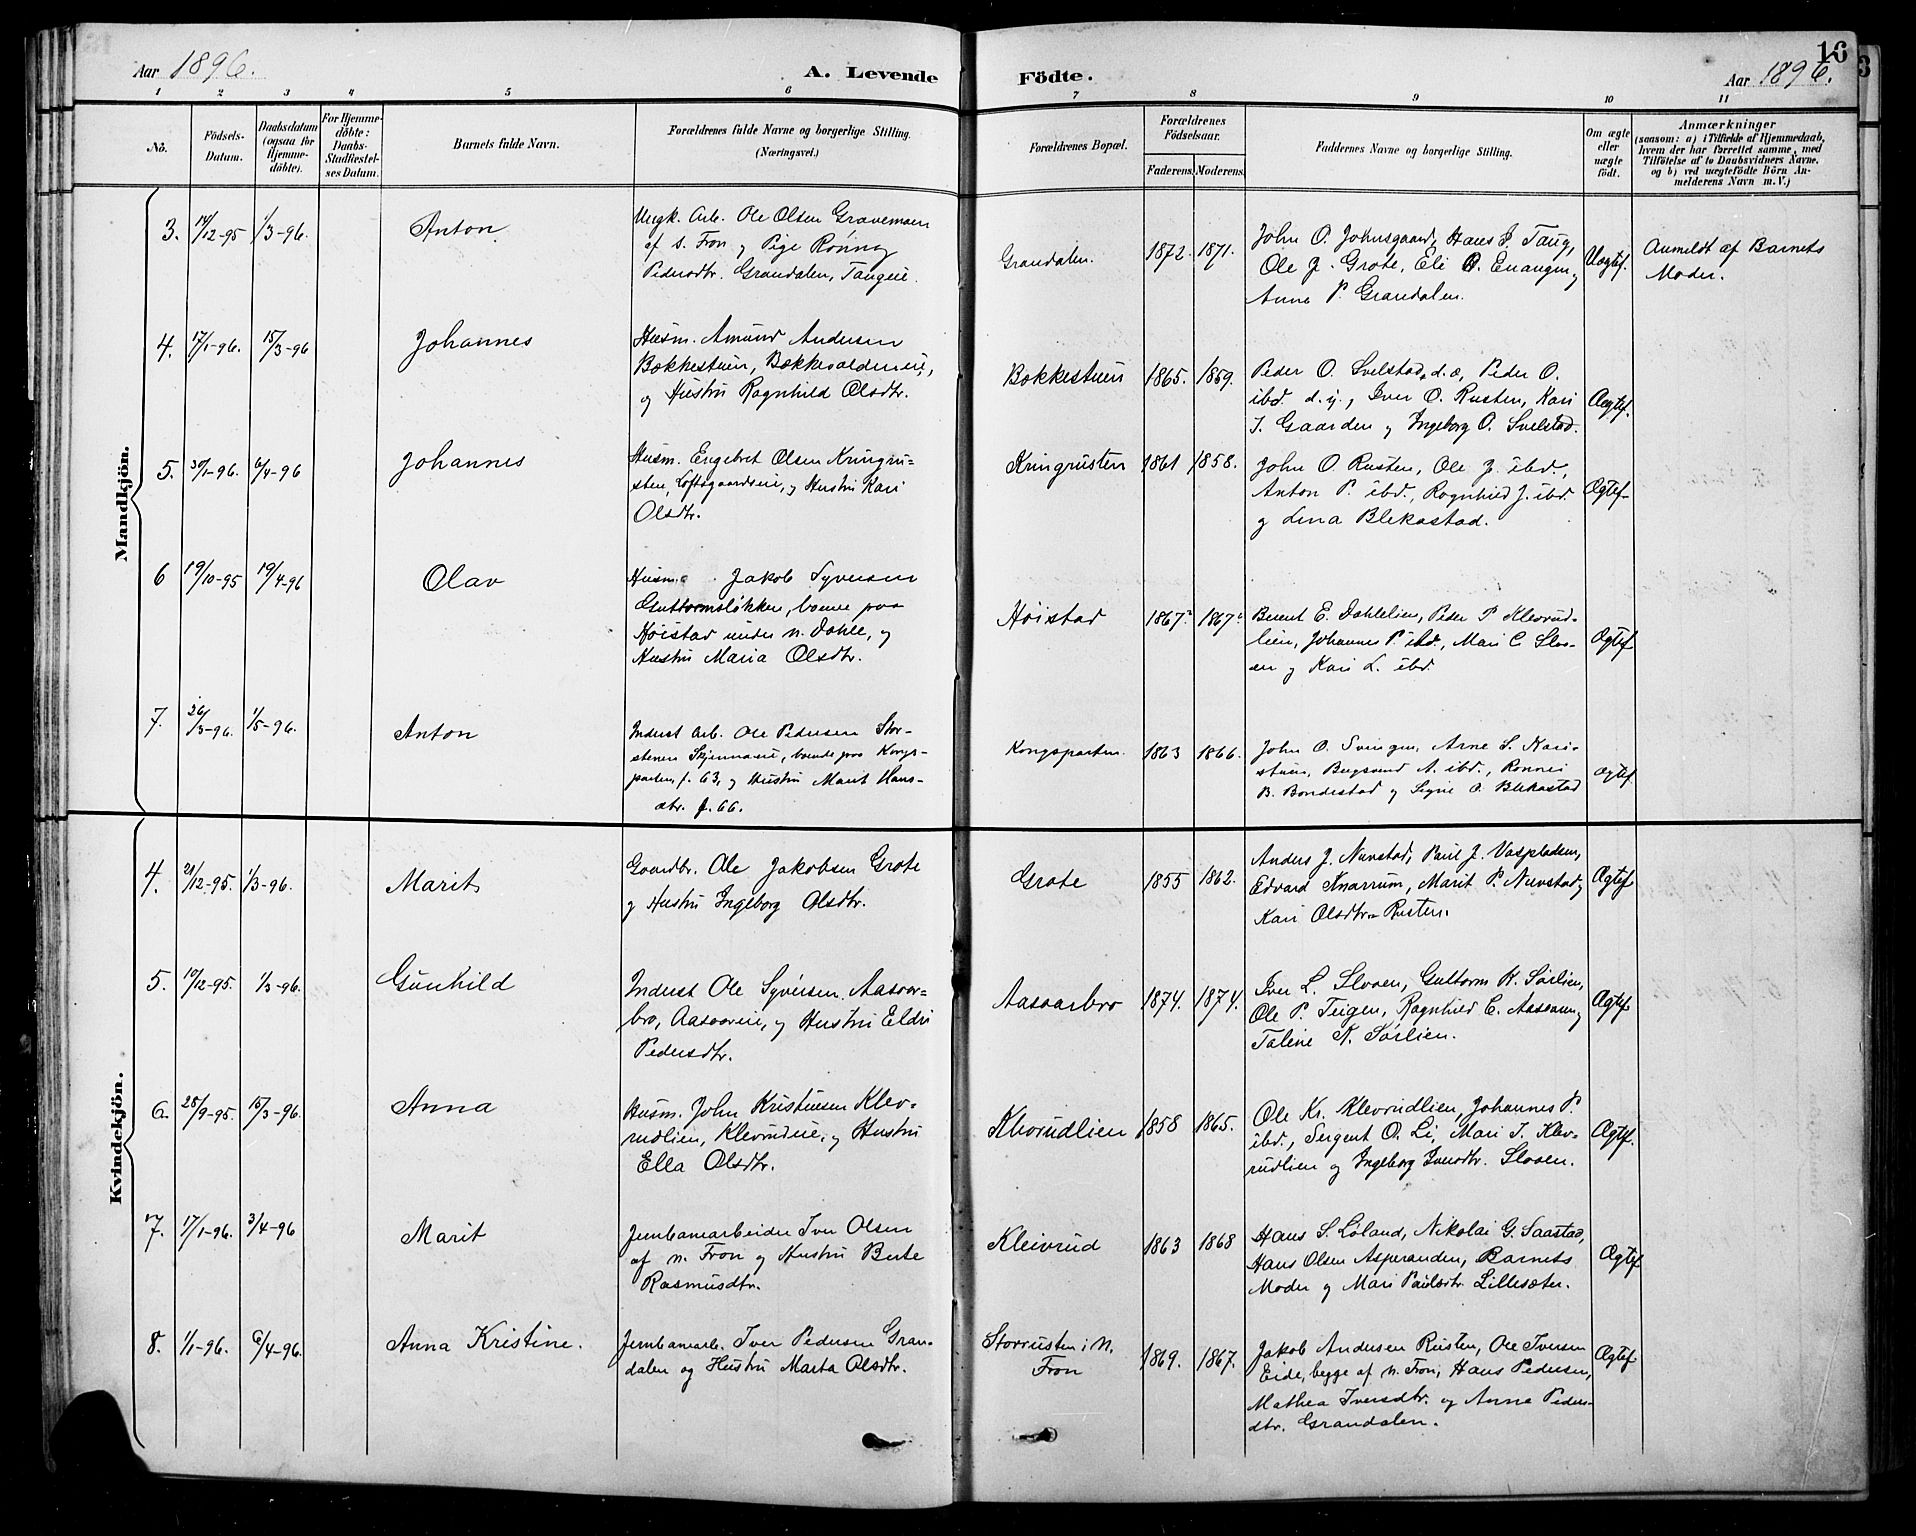 16
Aar 1896.
A. Levende Födte.
Aar 1896.
1 2 3 4 5 6 7 8 9 10 11
No.
Födsels-
Datum.
Daabsdatum
(ogsaa for
Hjemme-
döbte).
For Hjemme-
döbte:
Daabs-
Stadfæstel-
ses Datum.
Barnets fulde Navn.
Forældrenes fulde Navne og borgerlige Stilling.
(Næringsvei.)
Forældrenes Bopæl.
Forældrenes
Födselsaar.
Faderens. Moderens.
Faddernes Navne og borgerlige Stilling.
Om ægte
eller
uægte
födt.
Anmærkninger
(saasom: a) i Tilfælde af Hjemmedaab,
hvem der har forrettet samme, med
Tilföielse af to Daabsvidners Navne,
og b) ved uægtefödte Börn An-
melderens Navn m. V.)
Mandkjön.
3. 14/12-95 1/3-96. Anton
Ungk. Arb. Ole Olsen Gravemoen
af s. Fron og Pige Rønnog
Pedersdtr. Grandalen, Tangeie.
Grandalen. 1872. 1871.
John O. Johnsgaard, Hans J. Taug,
Ole J. Grote, Eli O. Enangen og
Anne P. Grandalen.
Uægtef.
Anmeldt af Barnets
Moder.
4. 17/1-96. 15/3-96 Johannes
Husm. Amund Andersen
Bækkestuen, Bækkevoldeneie,
og Hustru Ragnhild Olsdtr.
Bækkestuen 1865. 1859.
Peder O. Svelstad, d.æ, Peder O.
ibd. d.y., Iver O. Rusten, Kari
J. Gaarden og Ingeborg O. Svelstad.
Aegtef.
5. 30/1-96. 6/4-96 Johannes
Husm. Engebret Olsen Kringru-
sten, Loftsgaardseie, og Hustru Kari
Olsdtr.
Kringrusten 1861 1858.
John O. Rusten, Ole J. ibd.,
Anton P. ibd., Ragnhild J. ibd.
og Lina Blekastad.
Ægtef.
6 19/10-95 19/4-96 Olav
Husm. Jakob Syversen
Guttormsløkken, boende paa
Høistad under n. Dahle, og
Hustru Maria Olsdtr.
Høistad 1867 1867
Berent E. Dahlelien, Peder P. Klevrud-
lien, Johannes P. ibd., Mari C. Sloe-
en og Kari L. ibd.
Ægtef
7. 26/3-96. 1/5-96. Anton
Inderst Arb. Ole Pedersen Stor-
stenen Skjennaeie, boende paa Kongs-
parten, f. 63, og Hustru Marit Hans-
dtr. f. 66.
Kongsparten. 1863 1866.
John O. Svingen, Arne S. Kari-
stuen, Bugsvend A. ibd., Ronnei
B. Bondestad og Signe O. Blekastad
Ægtef
Kvindekjön.
4. 21/12-95. 1/3-96. Marit
Gaardbr. Ole Jakobsen Grote
og Hustru Ingeborg Olsdtr.
Grote 1855 1862.
Anders J. Nuvstad, Paul J. Vaspladsen,
Edvard Knarrum, Marit P. Nuvstad og
Kari Olsdtr. Rusten.
Ægtef
5. 10/12-95. 1/3-96. Gunhild
Inderst Ole Syversen Aasaar-
bro, Aasaareie, og Hustru Eldri
Pedersdtr.
Aasaarbro 1874. 1874.
Iver L. Sloen, Guttorm K. Sørlien,
Ole P. Teigen, Ragnhild C. Aasaaren og
Taline K. Sørlien.
Ægtef
6. 28/9-95. 15/3-96. Anna
Husm. John Kristiansen Klev-
rudlien, Klevrudeie, og Hustru
Ella Olsdtr.
Klevrudlien 1858 1865.
Ole Kr. Klevrudlien, Johannes P.
ibd., Sergent O. Li, Mari J. Klev-
rudlien og Ingeborg Iversdtr. Sloen.
Ægtef.
7. 17/1-96. 3/4-96 Marit
Jernbanearbeider Iver Olsen
af n. Fron og Hustru Berte
Rasmusdtr.
Kleivrud 1863 1868
Hans S. Løland, Nikolai G. Saastad,
Hans Olsen Asperanden, Barnets
Moder og Mari Paulsdtr. Lillesæter.
Ægtef
8. 1/1-96. 6/4-96. Anna Kristine.
Jernbanearb. Iver Pedersen Gran-
dalen og Hustru Marta Olsdtr.
Storrusten i N.
Fron 1869. 1867.
Jakob Andersen Rusten, Ole Iversen
Eide, begge af n. Fron, Hans Pedersen,
Mathea Iversdtr. og Anne Peders-
dtr. Grandalen.
Ægtef